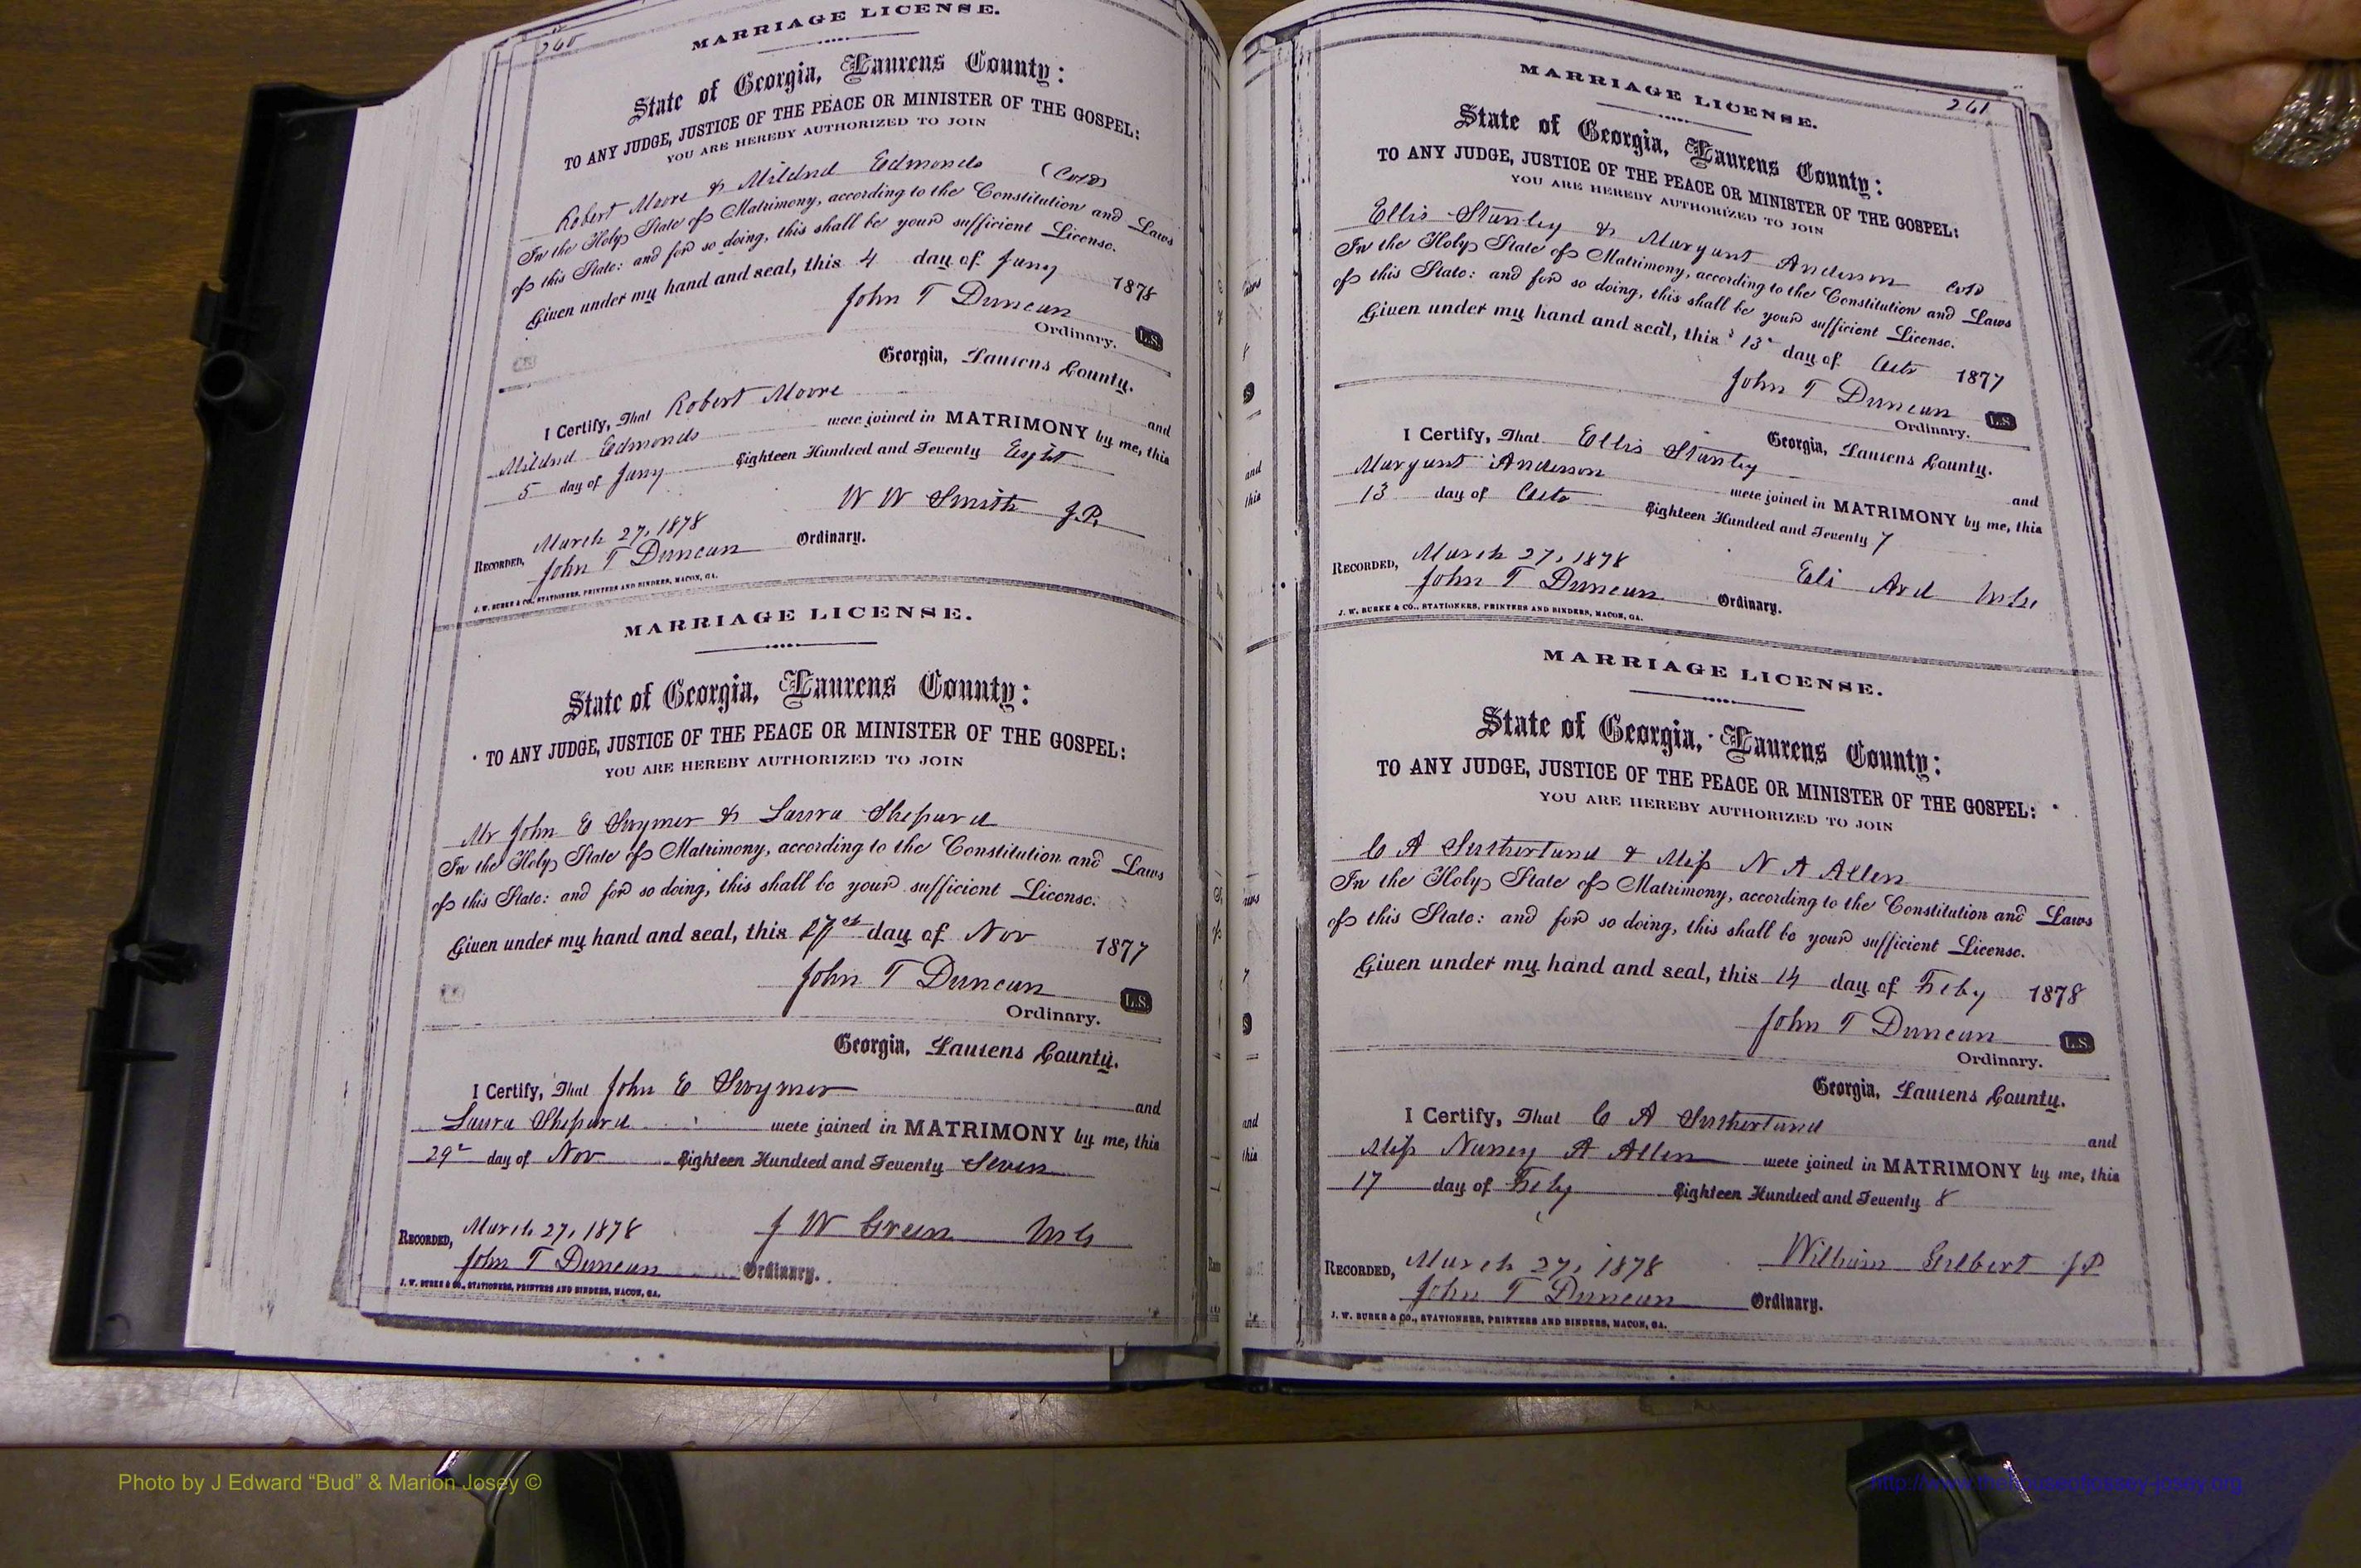 240
MARRIAGE LICENSE.
State of Georgia, Laurens County:
TO ANY JUDGE, JUSTICE OF THE PEACE OR MINISTER OF THE GOSPEL:
YOU ARE HEREBY AUTHORIZED TO JOIN
Robert Moore & Mildred Edmonds (Cold)
In the Holy State of Matrimony, according to the Constitution and Laws
of this State: and for so doing, this shall be your sufficient License.
Given under my hand and seal, this 4 day of Jany 1878
John T Duncan
Ordinary. L.S.
Georgia, Laurens County.
I Certify, That Robert Moore and
Mildred Edmonds were joined in MATRIMONY by me, this
5 day of Jany Eighteen Hundred and Seventy Eight
W W Smith J.P.
RECORDED, March 27, 1878
John T Duncan Ordinary.
J. W. BURKE & CO., STATIONERS, PRINTERS AND BINDERS, MACON, GA.
MARRIAGE LICENSE.
State of Georgia, Laurens County:
TO ANY JUDGE, JUSTICE OF THE PEACE OR MINISTER OF THE GOSPEL:
YOU ARE HEREBY AUTHORIZED TO JOIN
Mr John E Swymer & Laura Shepard
In the Holy State of Matrimony, according to the Constitution and Laws
of this State: and for so doing, this shall be your sufficient License.
Given under my hand and seal, this 27 day of Nov 1877
John T Duncan
L.S.
Ordinary.
Georgia, Laurens County.
I Certify, That John E Swymer and
Laura Shepard were joined in MATRIMONY by me, this
29 day of Nov Eighteen Hundred and Seventy Seven
J W Green M G
RECORDED, March 27, 1878
John T Duncan Ordinary.
J. W. BURKE & CO., STATIONERS, PRINTERS AND BINDERS, MACON, GA.
261
MARRIAGE LICENSE.
State of Georgia, Laurens County:
TO ANY JUDGE, JUSTICE OF THE PEACE OR MINISTER OF THE GOSPEL:
YOU ARE HEREBY AUTHORIZED TO JOIN
Ellis Stanley & Margant Anderson Cold
In the Holy State of Matrimony, according to the Constitution and Laws
of this State: and for so doing, this shall be your sufficient License.
Given under my hand and seal, this 13 day of Octo 1877
John T Duncan L.S.
Ordinary.
Georgia, Laurens County.
I Certify, That Ellis Stanley and
Margant Anderson were joined in MATRIMONY by me, this
13 day of Octo Eighteen Hundred and Seventy 7
Eli Ard
RECORDED, March 27, 1878
John T Duncan Ordinary.
J. W. BURKE & CO., STATIONERS, PRINTERS AND BINDERS, MACON, GA.
MARRIAGE LICENSE.
State of Georgia, Laurens County:
TO ANY JUDGE, JUSTICE OF THE PEACE OR MINISTER OF THE GOSPEL:
YOU ARE HEREBY AUTHORIZED TO JOIN
C A Sutherland & Miss N A Allen
In the Holy State of Matrimony, according to the Constitution and Laws
of this State: and for so doing, this shall be your sufficient License.
Given under my hand and seal, this 14 day of Feby 1878
John T Duncan L.S.
Ordinary.
Georgia, Laurens County.
I Certify, That C A Sutherland and
Miss Nancy A Allen were joined in MATRIMONY by me, this
17 day of Feby Eighteen Hundred and Seventy 8
William Gilbert J P
RECORDED, March 27, 1878
John T Duncan Ordinary.
J. W. BURKE & CO., STATIONERS, PRINTERS AND BINDERS, MACON, GA.
Photo by J Edward “Bud” & Marion Josey ©
http://www.thehouseofjossey-josey.org